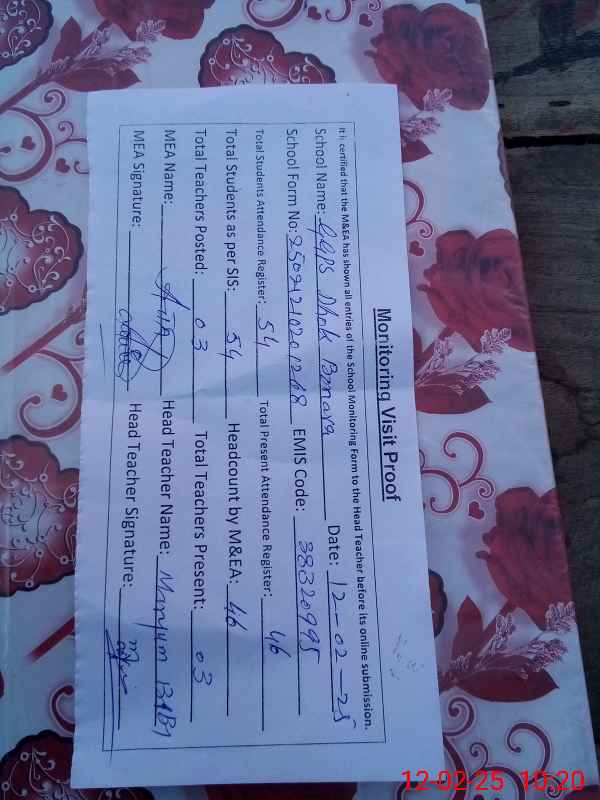 Monitoring Visit Proof
It is certified that the M&EA has shown all entries of the School Monitoring Form to the Head Teacher before its online submission.
School Name: GGPS Dhok Banara Date: 12-02-25
School Form No: EMIS Code: 38320995
Total Students Attendance Register: 54 Total Present Attendance Register: 46
Total Students as per SIS: 54 Headcount by M&EA: 46
Total Teachers Posted: 03 Total Teachers Present: 03
MEA Name: Head Teacher Name:
MEA Signature: Head Teacher Signature:
12-02-25 10:20